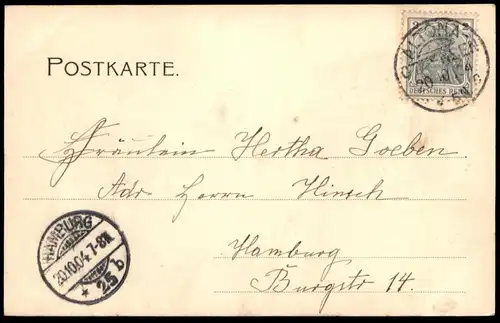 POSTKARTE.
ALTONA
DEUTSCHES REICH
Fräulein Hertha Goeben.
Adr Herrn Hinsch
Hamburg
Burgstr 14.
HAMBURG
20.10.04.7-8N
* 25b